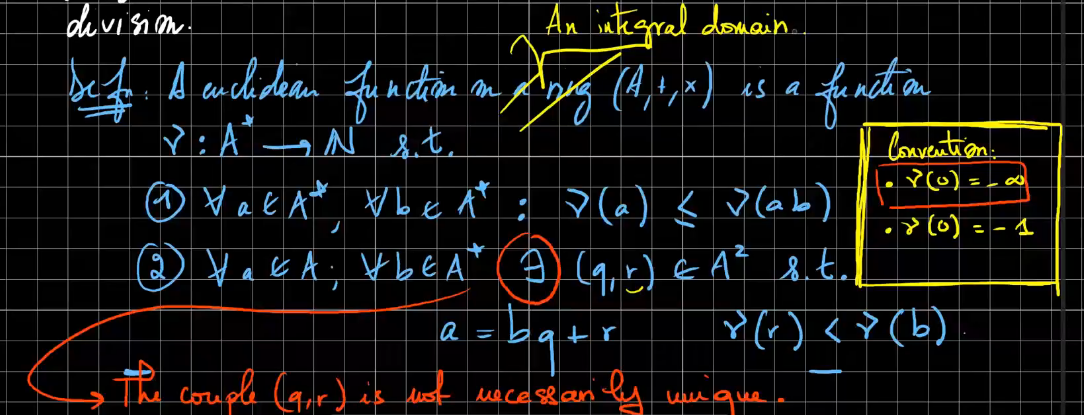 division.
An integral domain.
Defn: A euclidean function on a ring (A,+,×) is a function
ν : A* → ℕ s.t.
Convention:
• ν(0) = -∞
• ν(0) = -1
① ∀ a ∈ A*, ∀ b ∈ A* : ν(a) ≤ ν(ab)
② ∀ a ∈ A; ∀ b ∈ A* ∃ (q,r) ∈ A² s.t.
a = bq + r ν(r) < ν(b).
→ The couple (q,r) is not necessarily unique.